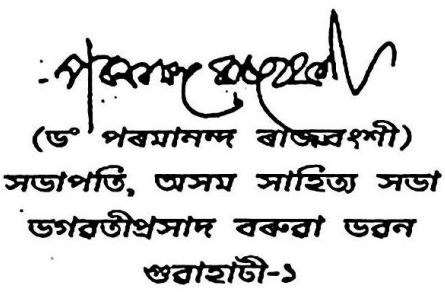 পৰমানন্দ ৰাজবংশী
(ড° পৰমানন্দ ৰাজবংশী)
সভাপতি, অসম সাহিত্য সভা
ভগৱতীপ্ৰসাদ বৰুৱা ভৱন
গুৱাহাটী-১